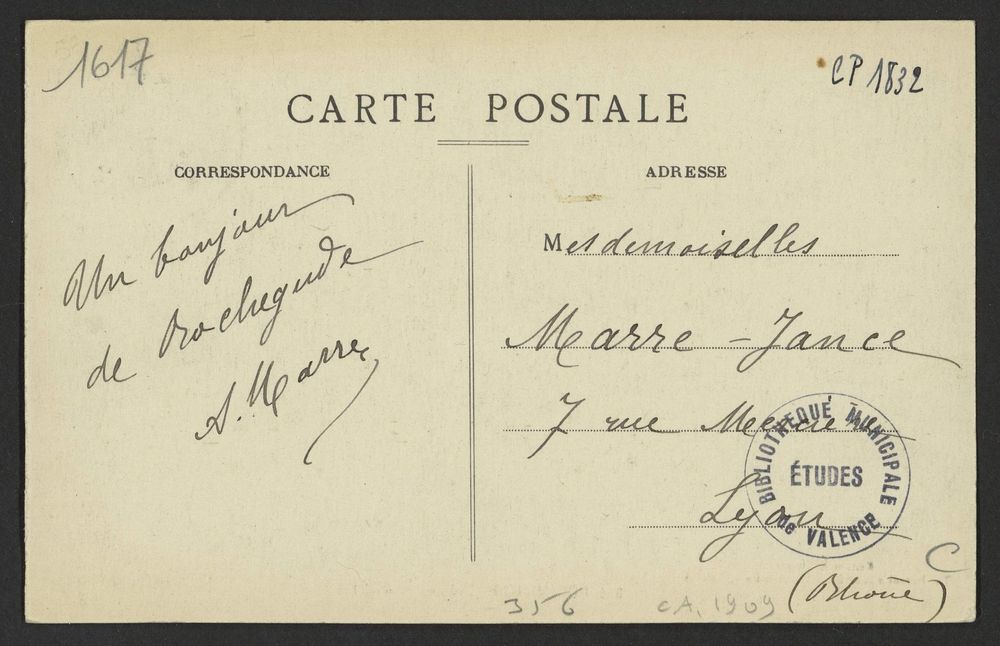 1617
CP 1832
CARTE POSTALE
CORRESPONDANCE
Un bonjour
de Rochegude
A. Marre
ADRESSE
Mesdemoiselles
Marre - Jance
7 rue
Lyon
(Rhône)
BIBLIOTHEQUE MUNICIPALE
ÉTUDES
de VALENCE
C
356
CA. 1909